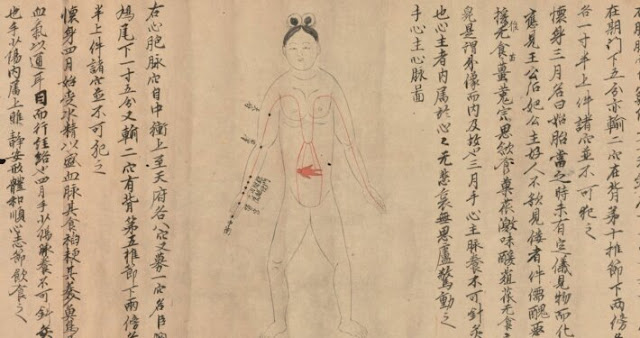 在期门下五分亦輸二穴在背第十推節下兩傍
各一寸半上件諸穴並不可犯之
懷身三月名曰始胎當此之時未有定儀見物而化
應見王公后妃公主好人不欲見僂者侏儒醜惡
猿猴无食薑菟完思欲食菓菰激味酸菹菰无食
皃是謂外像而内及故也三月手心主脉養不可針灸
也心主者内属於心々无悲哀無思慮驚動之
手心主心脉圖
右心胞脉穴自中衝上至天府各八穴又募一穴名巨
鳩尾下一寸五分又輸二穴有背第五推節下兩傍
半上件諸穴並不可犯之
懷身四月始受水精以盛血脉其食稻粳其羹魚
血氣以通耳目而行経絡也四月手少陽脉養不可針灸
也手少陽内属上膲静安形體和順心志節飲食之